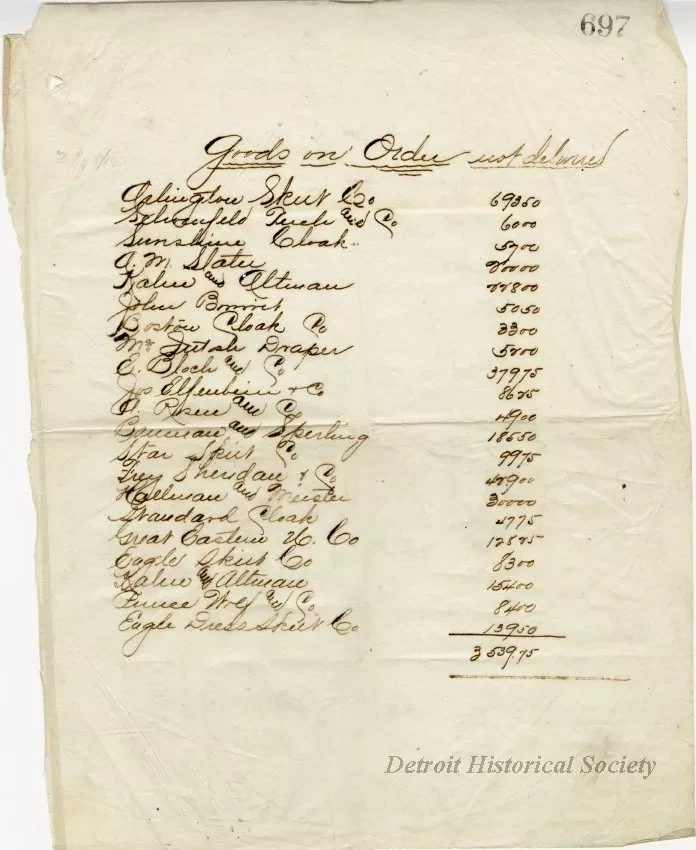 697
Goods on Order not delivered
Arlington Skirt Co 69350
and Co 6000
Sunshine Cloak
A. M. Slater 20000
Kahn and Altman 22800
John Bonwit 5050
Boston Cloak Co 3300
Mc Intosh Draper
E. Bloch and Co 37975
Jos Elfenbein + Co 8625
A. Rosen and Co 4900
Bauman and Sperling 18550
Star Skirt Co 9975
Frey Sheridan & Co
Hallman and Meister 30000
Standard Cloak
Great Eastern Co 12875
Eagle Skirt Co 8300
Kahn and Altman 15400
Wolf and Co 8400
Eagle Dress Skirt Co 13950
3539.75
Detroit Historical Society